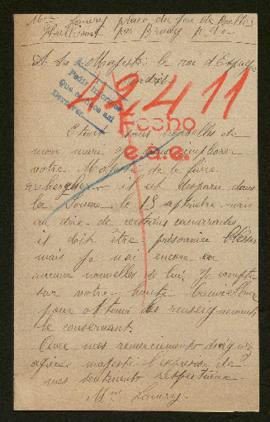 Mme Lauray place du
par Bruay p. de
A Sa Majesté le roi d'Espagne
Pedir informes
42411
Fecho
e.a.c.
Etant sans nouvelles de
mon mari je viens implorer
votre Majesté de le faire
rechercher il est disparu dans
la Somme le 15 septembre mais
au dire de certains camarades
il doit être prisonnier blessé
mais je n'ai encore eu
aucune nouvelles de lui je compte
sur votre haute bienveillance
pour obtenir des renseignements
le concernant.
Avec mes remerciements daignez
agréer majesté l'expression de
mes sentiments respectueux
Mme Lauray